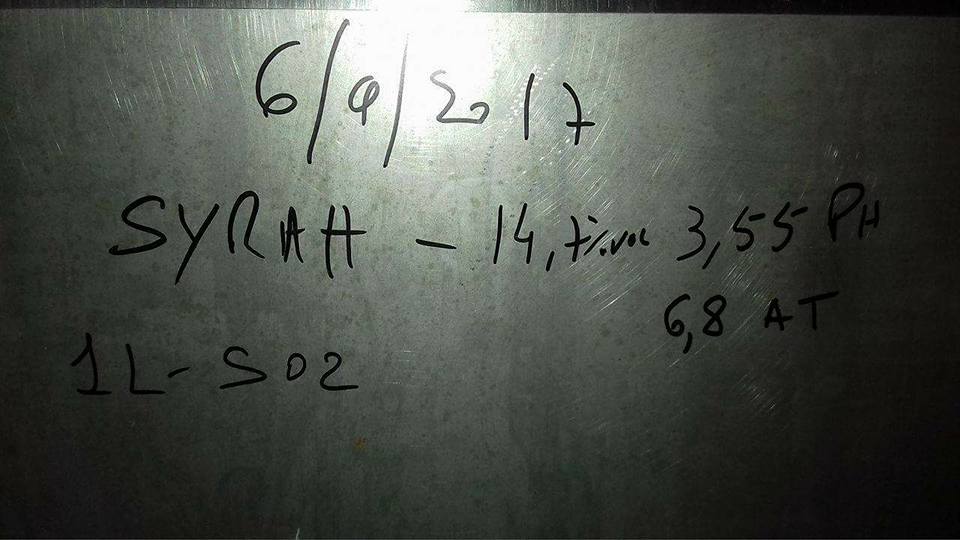 6/9/2017
SYRAH - 14,7%voc 3,55 PH
6,8 AT
1L- SO2